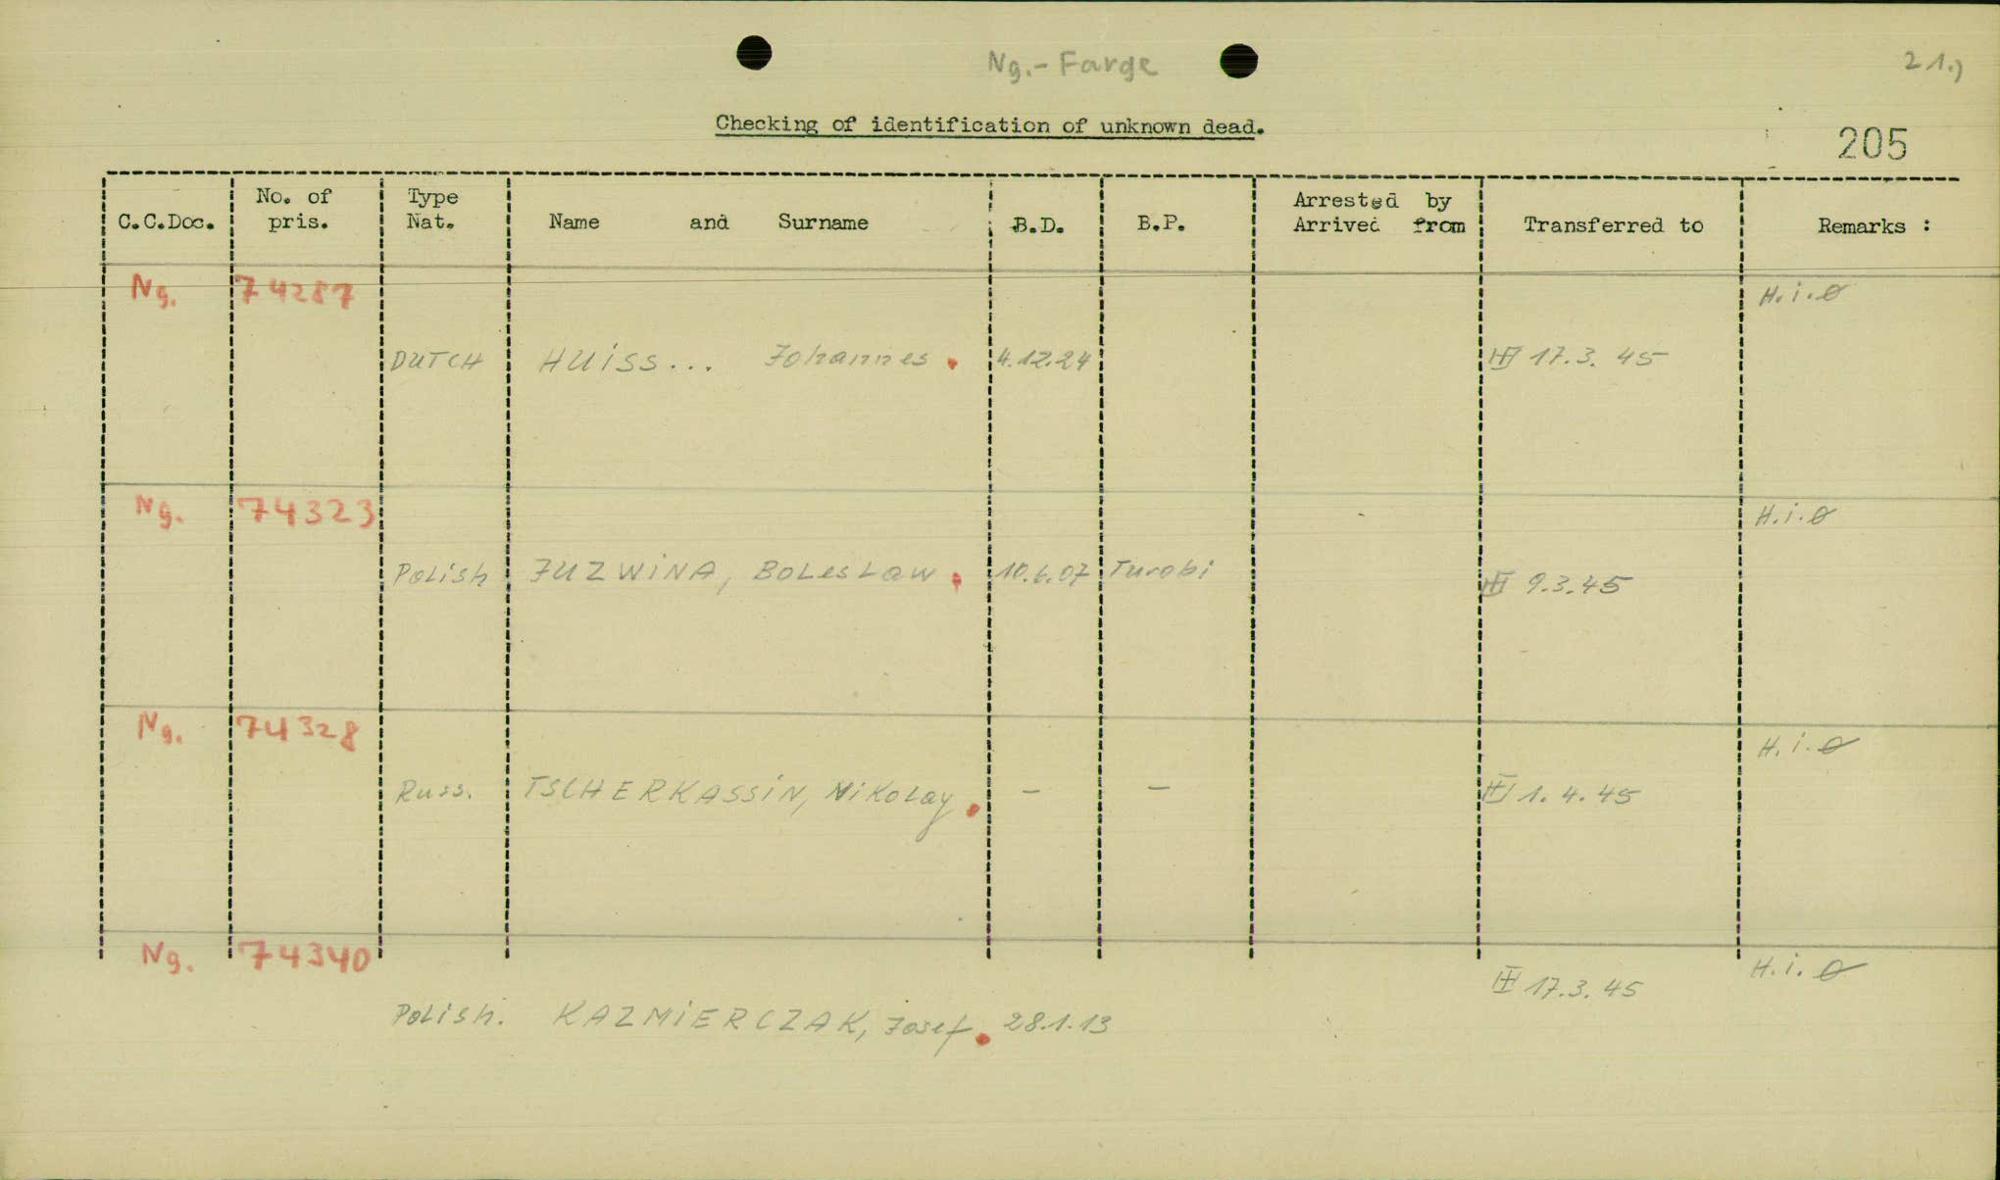 Ng.- Farge
21.)
Checking of identification of unknown dead.
205
C.C.Doc. No. of pris. Type Nat. Name and Surname B.D. B.P. Arrested by Arrived from Transferred to Remarks :
Ng. 74287 H.i.0
DUTCH HUiSS... Johannes. 4.12.24 17.3. 45
Ng. 74323 H.i.0
Polish JUZWiNA, BOLESLAW. 10.6.07 Turobi 9.3.45
Ng. 74328 H.i.0
Russ. TSCHERKASSiN, NiKOLAy. - - 1. 4. 45
Ng. 74340 H.i.0
17.3.45
Polish. KAZMiERCZAK, Josef. 28.1.13